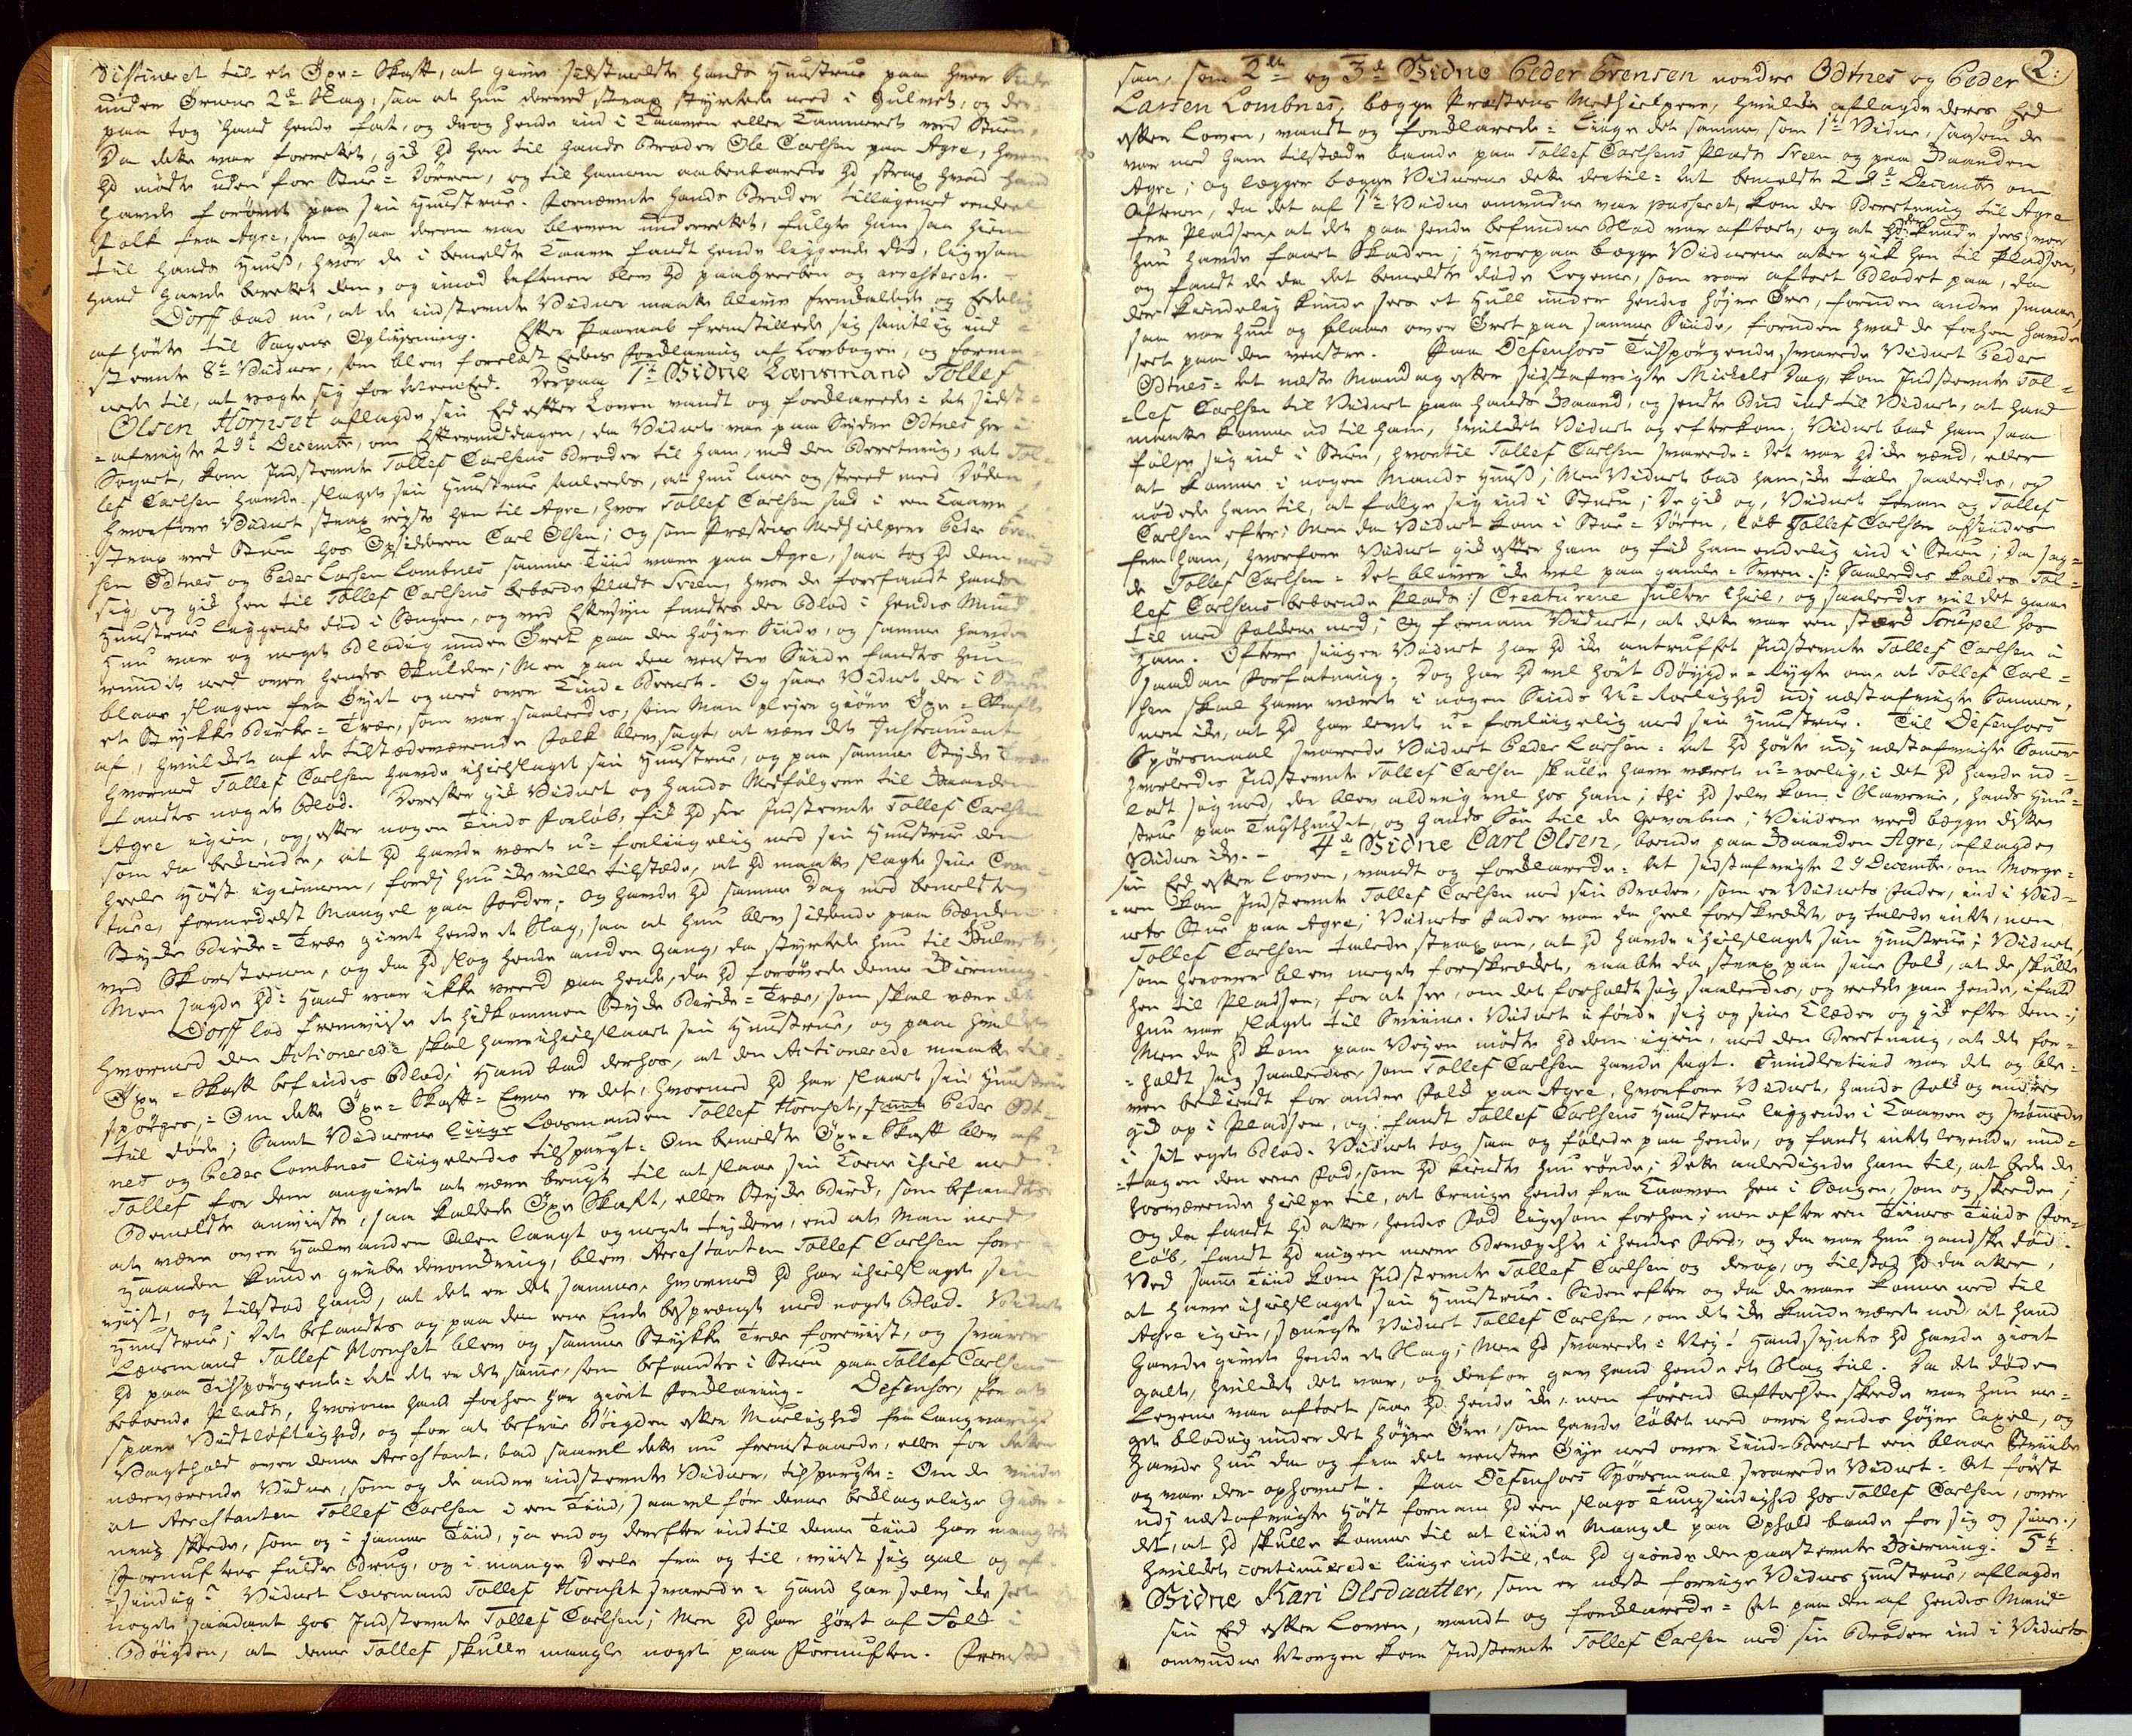 destineret til et Öxe-Skaft, at give sidstmeldte hands Hustrue paa hver Side
under Ørene 2de Slag, saa at hun derved strax styrtede ned i Gulvet, og der-
paa tog hand hende fat, og drog hende ind i Kaaven eller Kammeret ved Stuen,
Da dette var forrettet, gik hd hen til hands Broder Ole Carlsen paa Agre, hvem
hd mødte uden for Stue-Dørren, og til hannem aabenbarede hd strax hvad hand
havde forøvet paa sin Hustrue. Fornævnte hands Broder tilligemed endeel
Folk fra Agre, som ogsaa derom var bleven underrettet, fulgte ham saa hiem
til hands Huus, hvor de i bemeldte Kaave fandt hende liggende død, ligesom
hand havde berettet dem, og imod Aftenen blev hd paagreben og arresteret.
Dorff bad nu, at de indstevnte Vidner maatte blive fremkaldede og Eedelig
afhørte til Sagens Oplysning. Efter Paaraab fremstillede sig samtlig ind-
stevnte 8te Vidner, som blev forelæst Eedens Forklaring af Lovbogen, og forma-
nede til, at vogte sig for Meeneed. Derpaa 1te Vidne Lænsmand Tollef
Olsen Hornset aflagde sin Eed efter Loven vandt og forklarede: at sidst-
afvigte 29de Decembr, om Eftermiddagen, da Vidnet var paa Søndre Odtnes her i
Sognet, kom Indstevnte Tollef Carlsens Broder til ham, med den Beretning, at Tol-
lef Carlsen havde slaget sin Hustrue saaledes, at hun laae og streed med Døden,
hvorfore Vidnet strax reyste hen til Agre, hvor Tollef Carlsen sad i een Kaave
strax ved Stuen hos Opsidderen Carl Olsen; og som Præstens Medhielpere Peder Even-
sen Odtnes og Peder Larsen Lombnes samme Tiid vare paa Agre, saa tog hd dem med
sig, og gik hen til Tollef Carlsens beboede Plads Sveen, hvor de forefandt hands
Hustrue liggende død i Sengen, og ved Eftersyn fandtes der Blod i hendes Mund
hun var og meget blodig under Øret paa den høyre Siide, og samme havde
rundit ned over hendes Skulder; Men paa den venstre Siide fandtes hun
blaae slagen fra Øyet og ned over Kind-Beenet. Og saae Vidnet der i Stuen
et Stykke Birke-Træe, som var saaledes, som Man pleyer giøre Öxe-Skafte
af, hvilket af de tilstædeværende Folk blev sagt, at være det Instrument
hvormed Tollef Carlsen havde ihielslaget sin Hustrue, og paa samme Stykke Træe
fandtes noget Blod. Derefter gik Vidnet og hands Medfølgere til Gaarden
Agre igien, og, efter nogen Tiids Forløb, fik hd see Indstevnte Tollef Carlsen
som da bekiendte, at hd havde været u-forliigelig med sin Hustrue den
heele Høst igiennem, fordi hun ikke ville tilstæde, at hd maatte slagte sine Crea-
ture, formedelst Mangel paa Foder; og havde hd samme Dag med bemeldte
Stykke Birke-Træe givet hende et Slag, saa at hun blev siddende paa Bænken
ved Skorsteenen, og da hd slog hende anden Gang, da styrtede hun til Gulvet;
Men sagde hd: Hand var ikke vreed paa hende, da hd forøvede denne Gierning.
Dorff lod fremviise et hidkommen Stykke Birke-Træe, som skal være det
hvormed den Actionerede skal have ihielslaaet sin Hustrue, og paa hvilket
Öxe-Skaft befindes Blod; Hand bad derhos, at den Actionerede maatte til-
spørges: Om dette Öxe-Skaft-Emne er det, hvormed hd har slaaet sin Hustrue
til døde; Samt Vidnerne Liige Lænsmanden Tollef Hornset, samt Peder Odt-
nes og Peder Lombnes liigeledes tilspurgt: Om bemeldte Öxe-Skaft blev af
Tollef for dem angivet at være brugt til at slaae sin Kone ihiel med?
Bemeldte anviiste, saa kaldede Öxe Skaft, eller Stykke Birk, som befandtes
at være over Halvanden Alen langt og noget tykkere, end at Man med
Haanden kunde gribe deromkring, blev Arrestanten Tollef Carlsen fore-
viist, og tilstod hand, at det er det samme, hvormed hd har ihielslaget sin
Hustrue; Det befandtes og paa den eene Ende besprængt med noget Blod. Vidnet
Lænsmand Tollef Hornset blev og samme Stykke Træe foreviist, og svarer
hd paa Tilspørgende: at det er det samme, som befandtes i Stuen paa Tollef Carlsens
beboende Plads, hvorom hand forhen har giort Forklaring. Defensor, for at
spare Vidtløftighed, og for at befrie Bøigden efter Muelighed fra langvarig
Vagthold over denne Arrestant, bad saavel dette nu fremstaaede, eller for Retten
nærværende Vidne, som og de andre indstevnte Vidner, tilspurgte: Om de viide
at Arrestanten Tollef Carlsen i een Tiid, saavel før denne beklagelige Gier-
ning skeede, som og i samme Tiid, ja end og derefter indtil denne Tiid har manglet
Fornuftens fulde Brug, og i mange Deele fra og til viist sig gal og af-
sindig? Vidnet Lænsmand Tollef Hornset svarede: Hand har selv ikke seet
noget saadant hos Indstevnte Tollef Carlsen; Men hd har hørt af Folk i
Bøigden, at denne Tollef skulle mangle noget paa Fornuften. Fremstod
2.
saa, som 2det og 3de Vidne Peder Evensen nordre Odtnes og Peder
Larsen Lombnes, begge Præstens Medhielpere, hvilke aflagde deres Eed
efter Loven, vandt og forklarede: Liige det samme, som 1te Vidne, saasom de
var med ham tilstæde baade paa Tollef Carlsens Plads Sveen og paa Gaarden
Agre; og legger begge Vidnerne dette dertil: At bemeldte 29de Decembr om
Aftenen, da det af 1te Vidne omvundne var passeret, kom der Beretning til Agre
fra Pladsen, at det paa hende befundne Blod var aftoet, og at der kunde sees, hvor
hun havde faaet Skaden; hvorpaa begge Vidnerne atter gik hen til Pladsen,
og fandt de da det bemeldte døde Legeme, som var aftoet Blodet paa, da
der kiendelig kunde sees et Hull under hendes høyre Øre, foruden andre smaae,
saa var hun og blaae over Øret paa samme Siide, foruden hvad de forhen havde
seet paa den venstre. Paa Defensors Tilspørgende svarede Vidnet Peder
Odtnes: At næste Mandag efter sidstafvigte Mickels Dag, kom Indstevnte Tol-
lef Carlsen til Vidnet paa hands Gaard, og sendte Bud ind til Vidnet, at hand
maatte komme ud til ham, hvilket Vidnet og efterkom; Vidnet bad ham saa
følge sig ind i Stuen, hvortil Tollef Carlsen svarede: Det var hd ikke værd, eller
at komme i nogen Mands Huus; Men Vidnet bad ham ikke tale saaledes, og
nødede ham til, at følge sig ind i Stuen; De gik og, Vidnet frem og Tollef
Carlsen efter; Men da Vidnet kom i Stue-Døren, løb Tollef Carlsen afsiides
fra ham, hvorfore Vidnet gik efter ham og fik ham endelig ind i Stuen; Da sag-
de Tollef Carlsen: Det bliver ikke vel paa gamle-Sveen /: Saaledes kaldes Tol-
lef Carlsens beboende Plads :/ Creaturene sulter ihiel, og saaledes vil det gaae
til med Folkene med; Og fornam Vidnet, at dette var een stærk Scrupel hos
ham. Oftere siiger Vidnet har hd ikke antruffet Indstevnte Tollef Carlsen i
saadan Forfatning. Dog har hd vel hørt Bøigde-Rygte om, at Tollef Carl-
sen skal have været i nogen Sinds U-Roelighed udj næstafvigte Sommer,
men ikke, at hd har levet u-forliigelig med sin Hustrue. Til Defensors
Spørsmaal svarede Vidnet Peder Larsen: At hd hørte udj næstafvigte Sommer
hvorledes Indstevnte Tollef Carlsen skulle have været u-roelig, i det hd havde ud-
ladt sig med, der blev aldrig vel hos ham; thi hd selv kom i Slaverie, hands Hu-
strue paa Tugthuset, og hands Søn til de Gevorbne; Viidere veed begge disse
Vidner ikke. - 4de Vidne Carl Olsen, boende paa Gaarden Agre, aflagde
sin Eed efter Loven, vandt og forklarede: At sidstafvigte 29 Decembr, om Morge-
nen kom Indstevnte Tollef Carlsen med sin Broder, som er Vidnets Fader, ind i Vid-
nets Stue paa Agre; Vidnets Fader var da heel forskrækket, og talede intet, men
Tollef Carlsen talede strax om, at hd havde ihielslaget sin Hustrue; Vidnet,
som herover blev meget forskrækket, raabte da strax paa sine Folk, at de skulle
hen til Pladsen, for at see, om det forholdt sig saaledes, og redde paa hende, ifald
hun var slaget til Sviime. Vidnet iførde sig og sine Klæder og gik efter dem;
Men da hd kom paa Veyen mødte hd dem igien, med den Beretning, at det for-
holdt sig saaledes, som Tollef Carlsen havde sagt. Imidlertiid var det og ble-
ven bekiendt for andre Folk paa Agre, hvorfore Vidnet, hands Folk og andre
gik op i Pladsen, og fandt Tollef Carlsens Hustrue liggende i Kaaven og svømede
i sit eget Blod. Vidnet tog saa og følede paa hende, og fandt intet levende, und-
tagen den eene Fod, som hd kiendte hun rørde; Dette anledigede ham til, at bede de
hosværende hielpe til, at bringe hende fra Kaaven hen i Sengen, som og skeede;
Og da fandt hd atter, hendes Fod ligesom forhen; men efter een Tiimes Tiids For-
løb, fandt hd ingen meere Bevægelse i hendes Fod, og da var hun gandske død.
Ved samme Tiid kom Indstevnte Tollef Carlsen og derop, og tilstod hd da atter,
at have ihielslaget sin Hustrue. Siden efter og da de vare komne ned til
Agre igien, spurgte Vidnet Tollef Carlsen, om det ikke kunde været nok at hand
havde givet hende et Slag; Men hd svarede: Ney! Hand syntes hd havde giort
galt, hvilket det var, og derfor gav hand hende et Slag til. Da det døde
Legeme var aftoet saae hd hende ikke, men forend Aftoelsen skeede var hun me-
get blodig under det høyre Øre, som havde løbet ned over hendes høyre Axel, og
havde hun da og fra det venstre Øye ned over Kind-Beenet een blaae Striibe
og var der ophovnet. Paa Defensors Spørsmaal svarede Vidnet: At først
udj næstafvigte Høst fornam hd een slags Tungsindighed hos Tollef Carlsen, over
det, at hd skulle komme til at liide Mangel paa Ophold baade for sig og sine;
hvilket continuerede liige indtil, da hd giorde den paastevnte Gierning. 5te
Vidne Kari Olsdaatter, som er næst forrige Vidnes Hustrue, aflagde
sin Eed efter Loven, vandt og forklarede: At paa den af hendes Mand
omvundne Morgen kom Indstevnte Tollef Carlsen med sin Broder ind i Vidnets